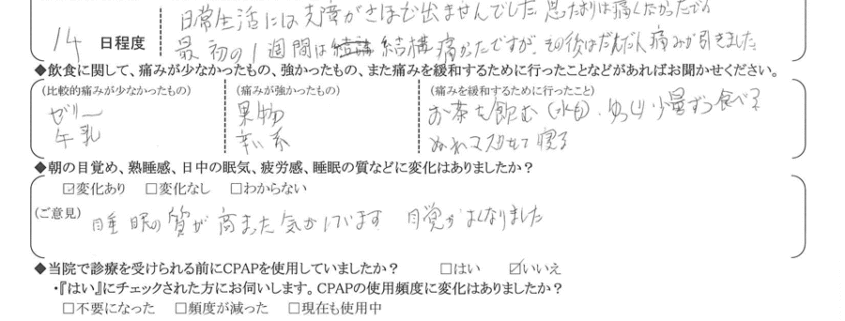 日常生活には支障がさほど出ませんでした 思ったよりは痛くなかったです
14 日程度
最初の1週間は結構痛かったですが、その後はだんだん痛みが引きました
◆飲食に関して、痛みが少なかったもの、強かったもの、また痛みを緩和するために行ったことなどがあればお聞かせください。
(比較的痛みが少なかったもの) (痛みが強かったもの) (痛みを緩和するために行ったこと)
ゼリー 果物 お茶を飲む(水も)、ゆっくり少量ずつ食べる
牛乳 辛い系 ぬれマスクをして寝る
◆朝の目覚め、熟睡感、日中の眠気、疲労感、睡眠の質などに変化はありましたか?
☑変化あり □変化なし □わからない
(ご意見) 睡眠の質が高まった気がしています 目覚がよくなりました
◆当院で診療を受けられる前にCPAPを使用していましたか? □はい ☑いいえ
・『はい』にチェックされた方にお伺いします。CPAPの使用頻度に変化はありましたか?
□不要になった □頻度が減った □現在も使用中